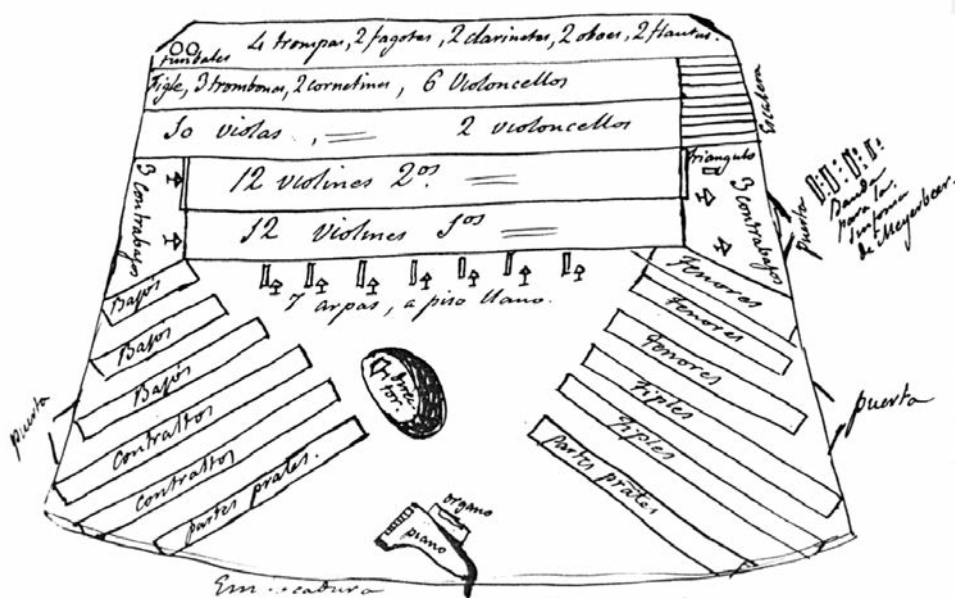 4 trompas, 2 fagotes, 2 clarinetes, 2 oboes, 2 flautas.
timbales
Figle, 3 trombones, 2 cornetines, 6 violoncellos
10 violas, 2 violoncellos
Escalera
12 violines 2os.
12 violines 1os
3 Contrabajos
triangulo
3 Contrabajos
puerta
Banda
para la
sinfonia
de Meyerbeer.
7 arpas, a piso llano.
Bajos
Bajos
Bajos
Contraltos
Contraltos
partes prales.
Tenores
Tenores
Tenores
Tiples
Tiples
Partes prales
Director.
puerta
puerta
organo
piano